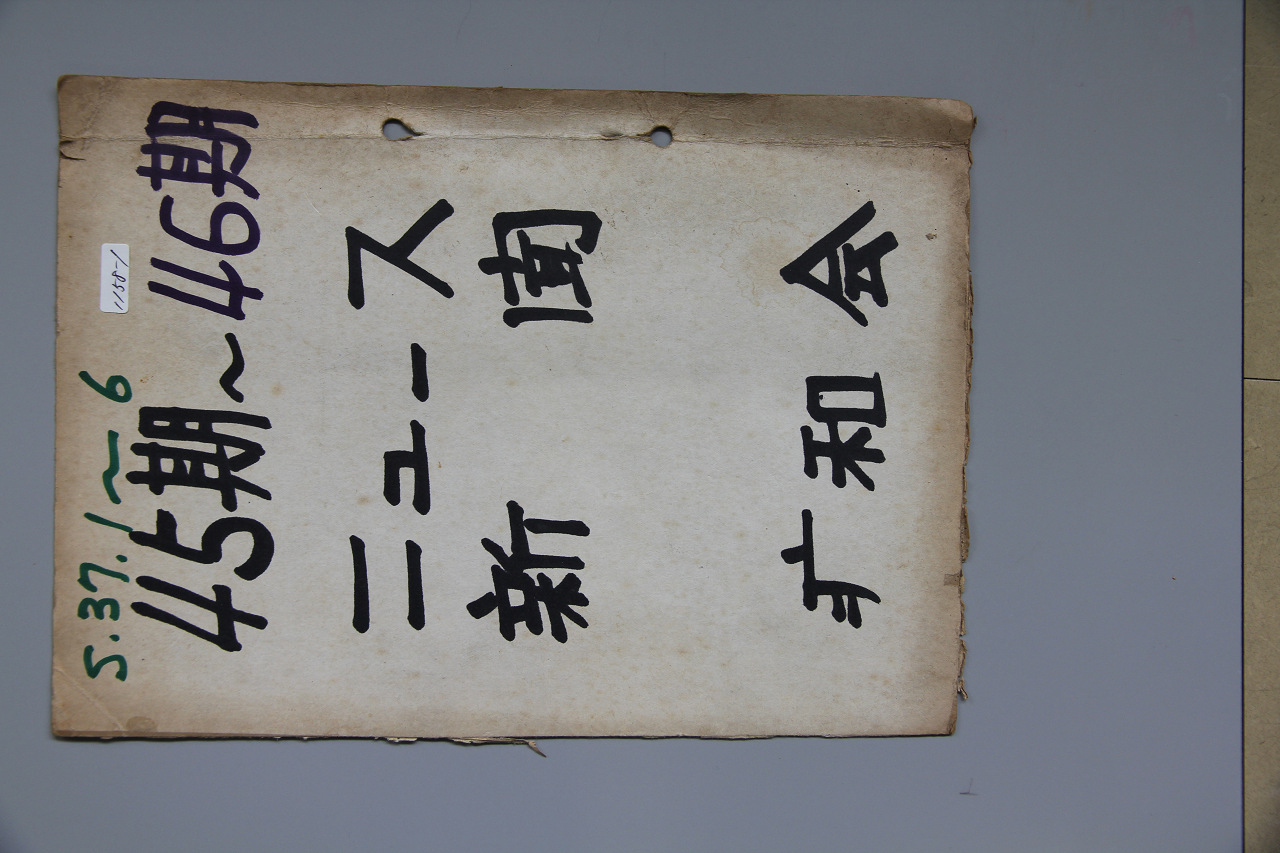 S.37.1〜6
45期〜46期
1158-1
ニュース
新聞
疒和会